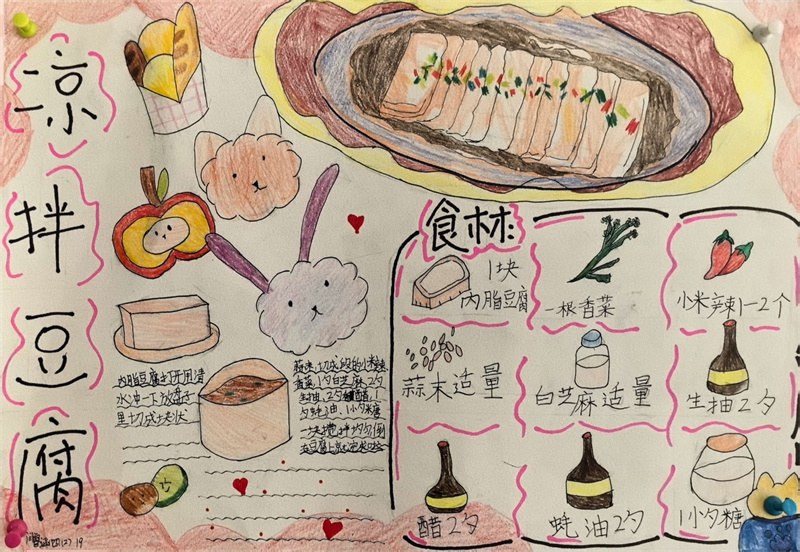 凉拌豆腐
食材:
1块
内脂豆腐
一根香菜
小米辣1-2个
蒜末适量
白芝麻适量
生抽2夕
醋2夕
蚝油2夕
1小夕糖
内脂豆腐打开用清
水冲一下放盘子
里切成块状
蒜末,切成段的小米辣,
香菜,1夕白芝麻,2夕
生抽,2夕醋,1
夕蚝油,1小夕糖
一块搅拌均匀倒
在豆腐上就完成啦